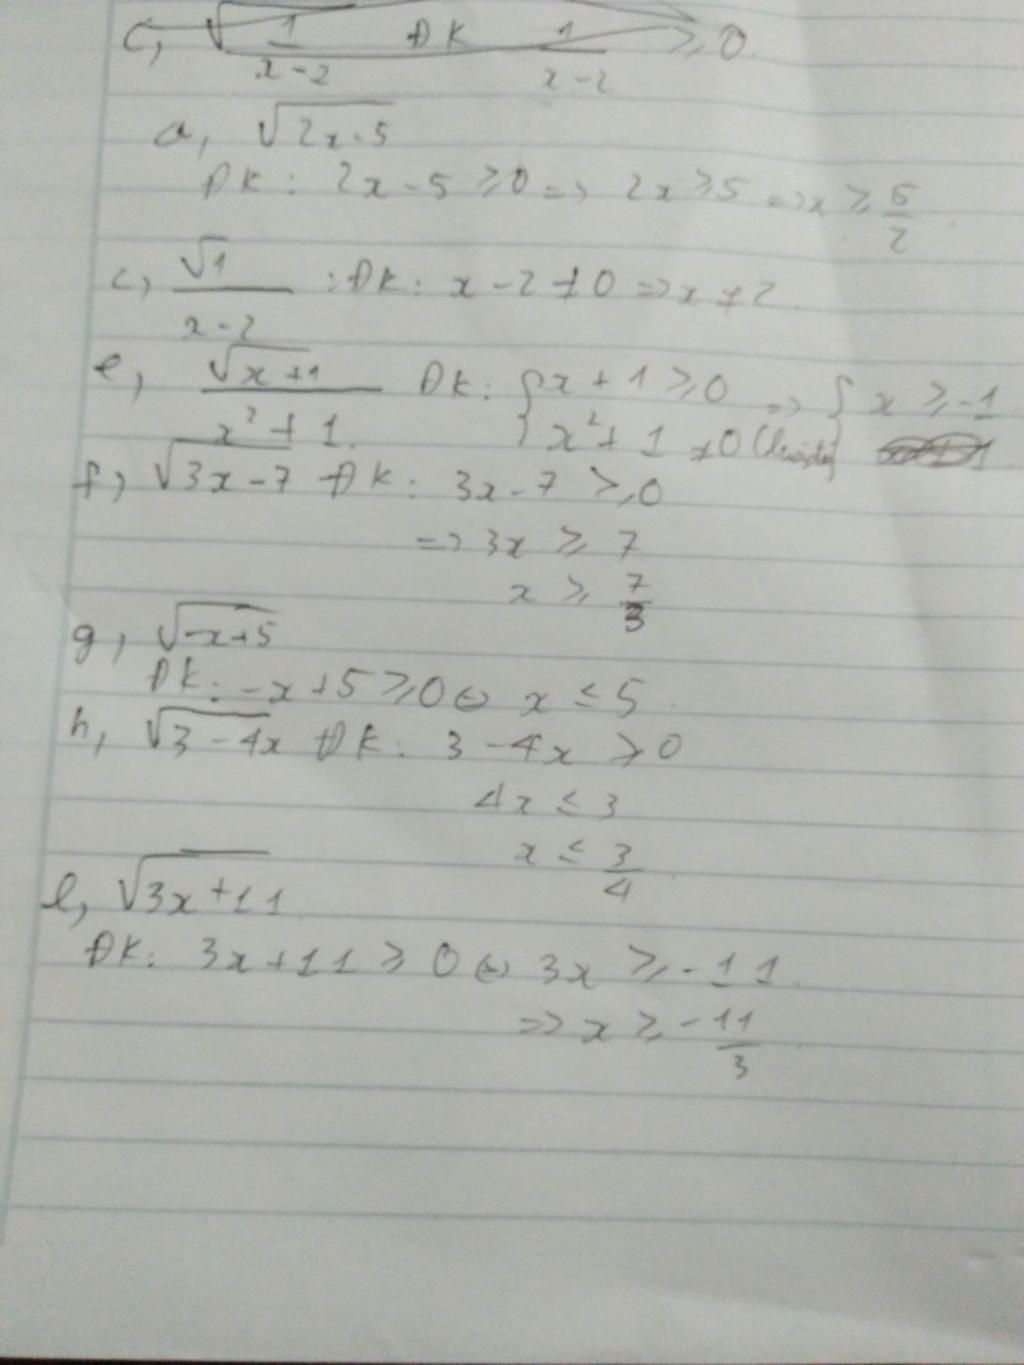 c, √1/x-2 ĐK 1/x-2 ≥ 0
a, √2x-5
ĐK: 2x-5 ≥ 0 => 2x ≥ 5 => x ≥ 5/2
c, √1/x-2 : ĐK: x-2 ≠ 0 => x ≠ 2
e, √x+1/x²+1. ĐK: { x+1 ≥ 0 => { x ≥ -1
x²+1 ≠ 0
f, √3x-7 ĐK: 3x-7 ≥ 0
=> 3x ≥ 7
x ≥ 7/3
g, √-x+5
ĐK: -x+5 ≥ 0 ⇔ x ≤ 5.
h, √3-4x ĐK: 3-4x ≥ 0
4x ≤ 3
x ≤ 3/4
l, √3x+11
ĐK: 3x+11 ≥ 0 ⇔ 3x ≥ -11.
=> x ≥ -11/3